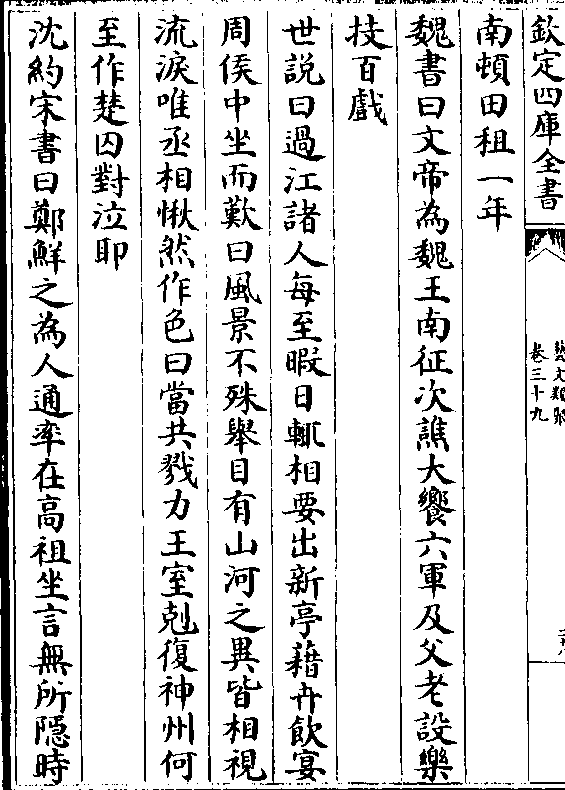 欽定四庫全書
藝文類聚
卷三十九
南頓田租一年
魏書曰文帝為魏王南征次譙大饗六軍及父老設樂
技百戲
世說曰過江諸人每至暇日輒相要出新亭藉卉飲宴
周侯中坐而歎曰風景不殊舉目有山河之異皆相視
流淚唯丞相愀然作色曰當共戮力王室剋復神州何
至作楚囚對泣耶
沈約宋書曰鄭鮮之為人通率在高祖坐言無所隱時